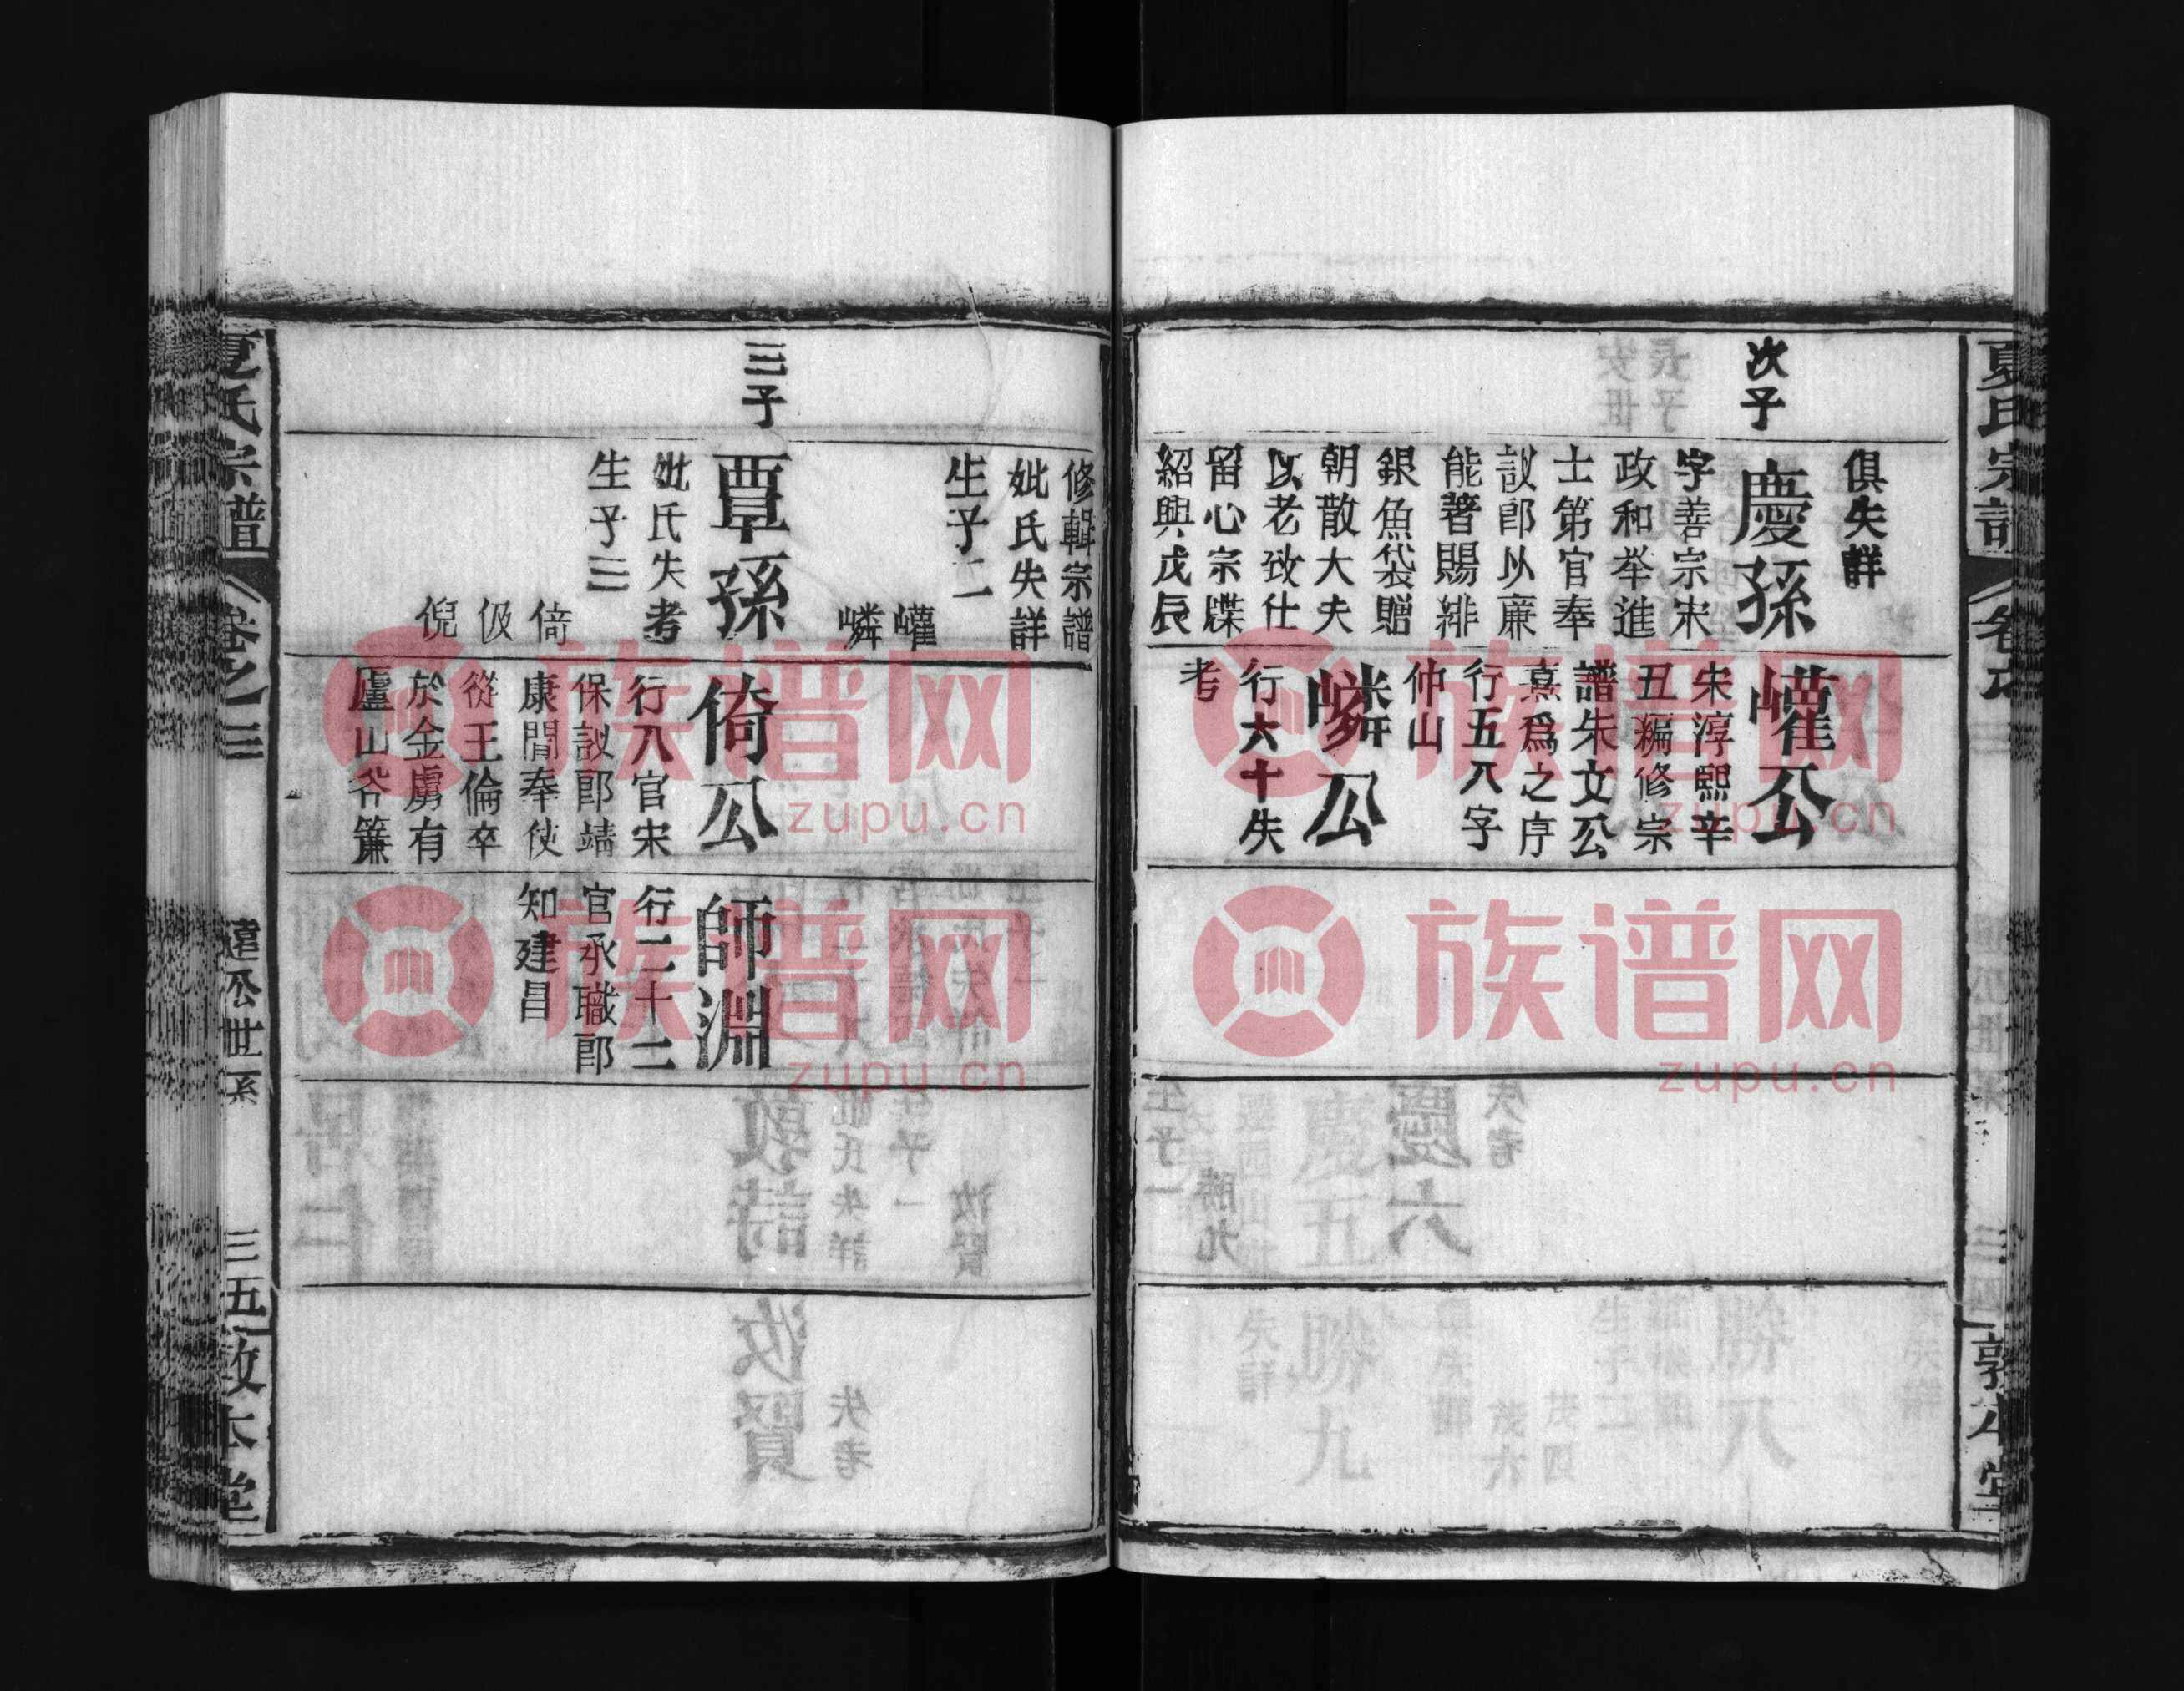 夏氏宗譜
次子
俱失詳
慶孫
字善宗宋
政和举進
士第官奉
議郎以廉
能著賜緋
銀魚袋贈
朝散大夫
以老致仕
留心宗牒
紹興戊辰
巏公
宋淳熙辛
丑編修宗
譜朱文公
熹爲之序
行五八字
仲山
嶙公
行六十失
考
三四
敦本堂
三子
修輯宗譜
妣氏失詳
生子二
巏
嶙
覃孫
妣氏失考
生子三
倚
伋
倪
倚公
行八官宋
保議郎靖
康間奉使
從王倫卒
於金虜有
盧山爷簾
師淵
行二十二
官承職郎
知建昌
夏氏宗譜
卷之三
達公世系
三五
敦本堂
族谱网
zupu.cn
族谱网
zupu.cn
族谱网
zupu.cn
族谱网
zupu.cn